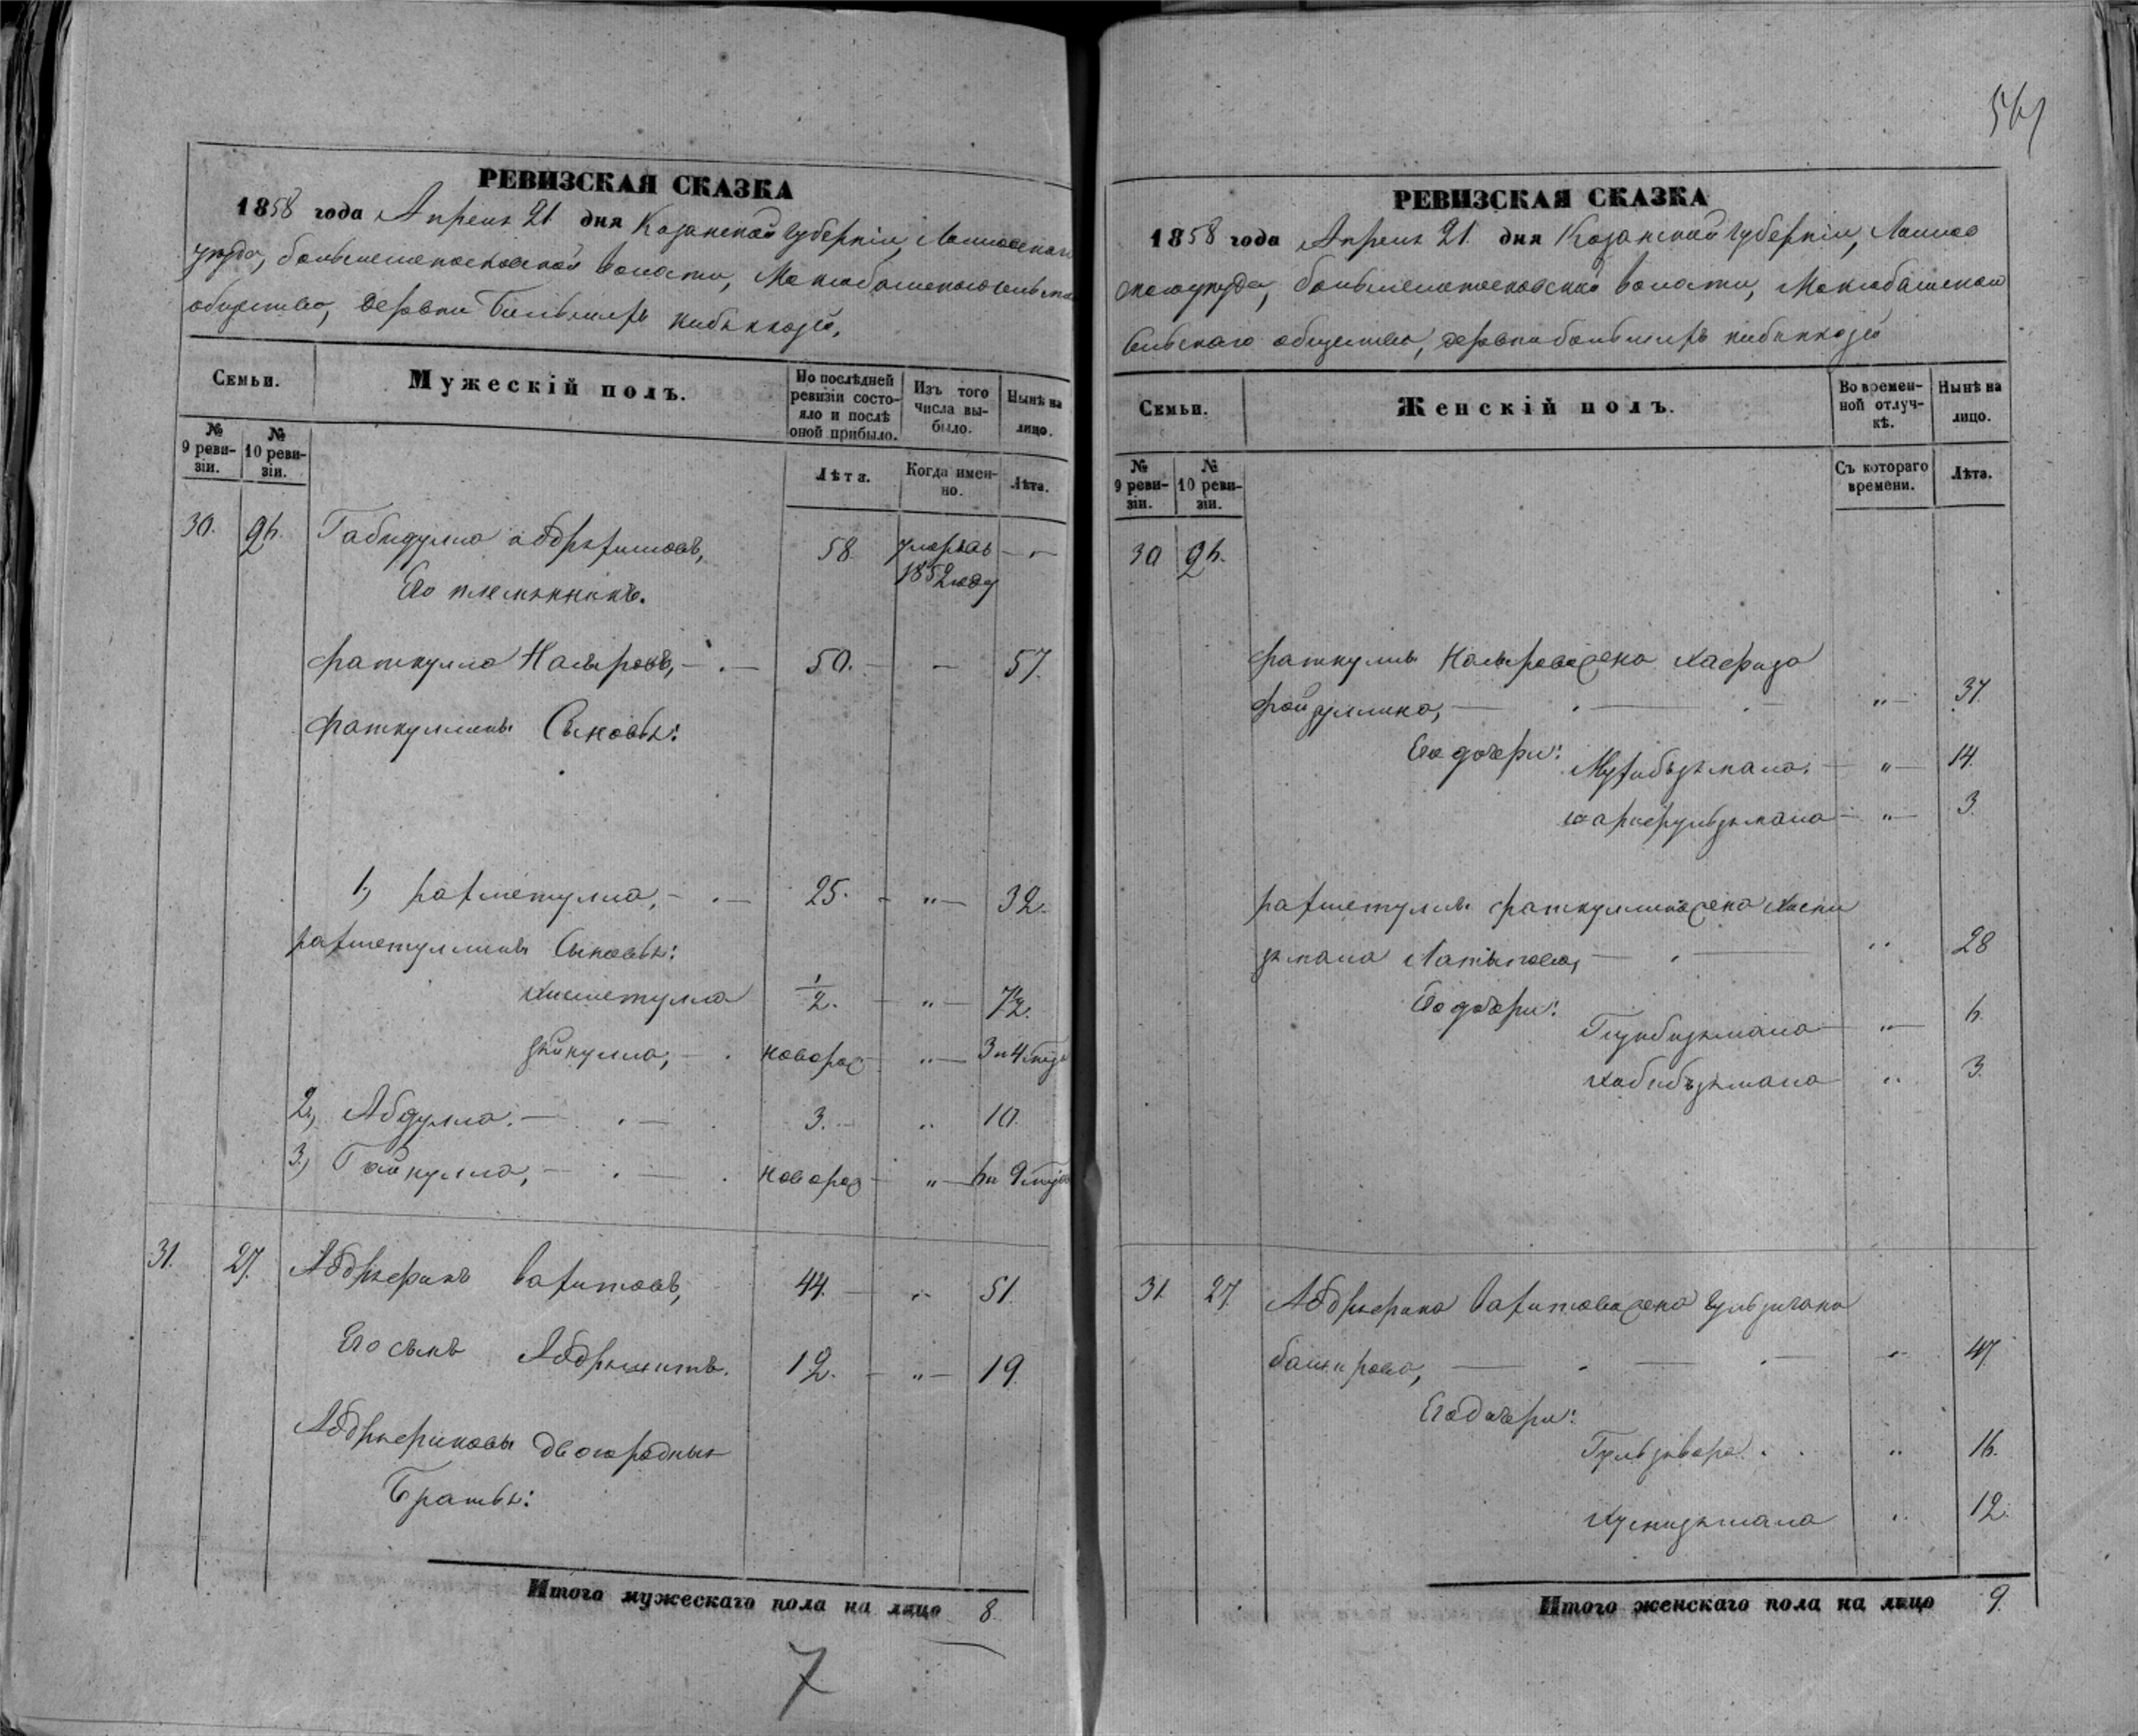 РЕВИЗСКАЯ СКАЗКА
1858 года Апреля 21 дня Казанской Губернiи, Лаишевскаго
уѣзда, волости,
общества, деревни Большихъ Кибякозей,
Семьи.
Мужескій полъ.
По послѣдней ревизіи состояло и послѣ оной прибыло.
Изъ того числа выбыло.
Нынѣ на лицо.
№ 9 ревизіи.
№ 10 ревизіи.
Лѣта.
Когда именно.
Лѣта.
30. 26. Габидулла Абдрахимовъ, 58 умеръ въ 1852 году
Его племянникъ.
Фаткулла Насыровъ, 50. 57.
Фаткуллины Сыновья:
1, Рахметулла, 25. " 32.
Рахметуллины Сыновья:
Хисметулла 1/2. " 7 1/2.
Зейкулла, новорож " 3 и 4 мѣся
2, Абдулла. 3. " 10.
3, Гайкулла, новорож " 6 и 9 мѣся
31. 27. Абдрясфикъ Вахитовъ, 44. " 51.
Его сынъ Абдряшитъ. 12. " 19.
Абдрясфиковы двоюродныя
Братья:
Итого мужескаго пола на лицо 8.
7
561
РЕВИЗСКАЯ СКАЗКА
1858 года Апреля 21 дня Казанской Губернiи, Лаишев
скаго уѣзда, волости,
Сельскаго общества, деревни Большихъ Кибякозей
Семьи.
Женскій полъ.
Во временной отлучкѣ.
Нынѣ на лицо.
№ 9 ревизіи.
№ 10 ревизіи.
Съ котораго времени.
Лѣта.
30 26.
Фаткуллы Насырова жена Хафиза
Файзуллина, " 37.
Его дочери:
Мухибъзямала. " 14.
" 3.
Рахметуллы Фаткуллина жена Хисни
зямала Латыпова, " 28
Его дочери:
" 6.
Хабибъзямала " 3.
31. 27. Абдрясфика Вахитова жена
Баширова, " 47.
Его дочери:
Гульзявара. " 16.
Хуснизямала " 12.
Итого женскаго пола на лицо 9.